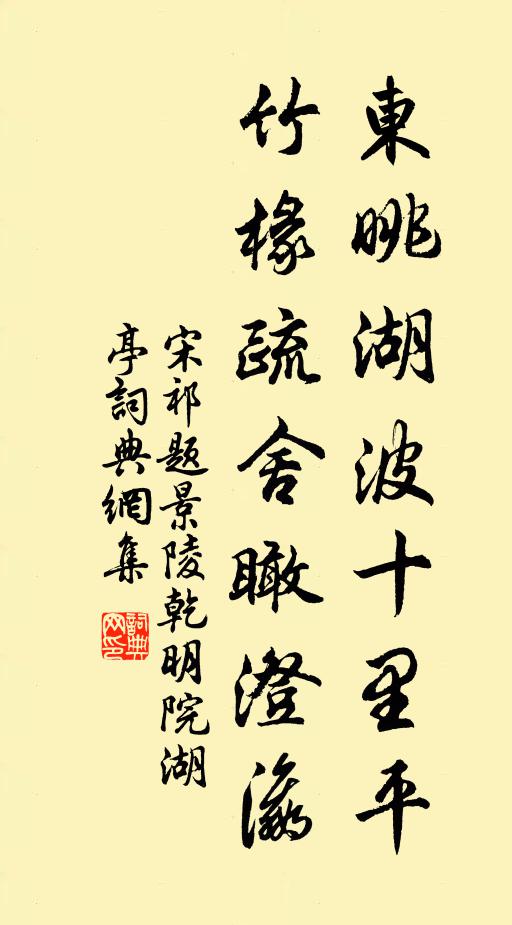 東眺湖波十里平
竹椽疏舍瞰澄瀛
宋祁题景陵乾明院湖
亭詞典網集
詞典
网印